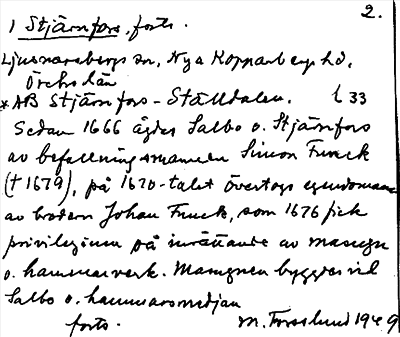 1 Stjärnfors, forts. 2.
Ljusnarsbergs sn, Nya Kopparbergs hd,
Örebro län
*AB Stjärnfors-Ställdalen. t 33
Sedan 1666 ägdes Salbo o. Stjärnfors
av befallningsmannen Simon Funck
(†1679), på 1670-talet övertogs egendomarna
av brodern Johan Funck, som 1676 fick
privilegium på inrättande av masugn
o. hammarverk. Masugnen byggdes vid
Salbo o. hammarsmedjan
forts. M. Forsslund 1949